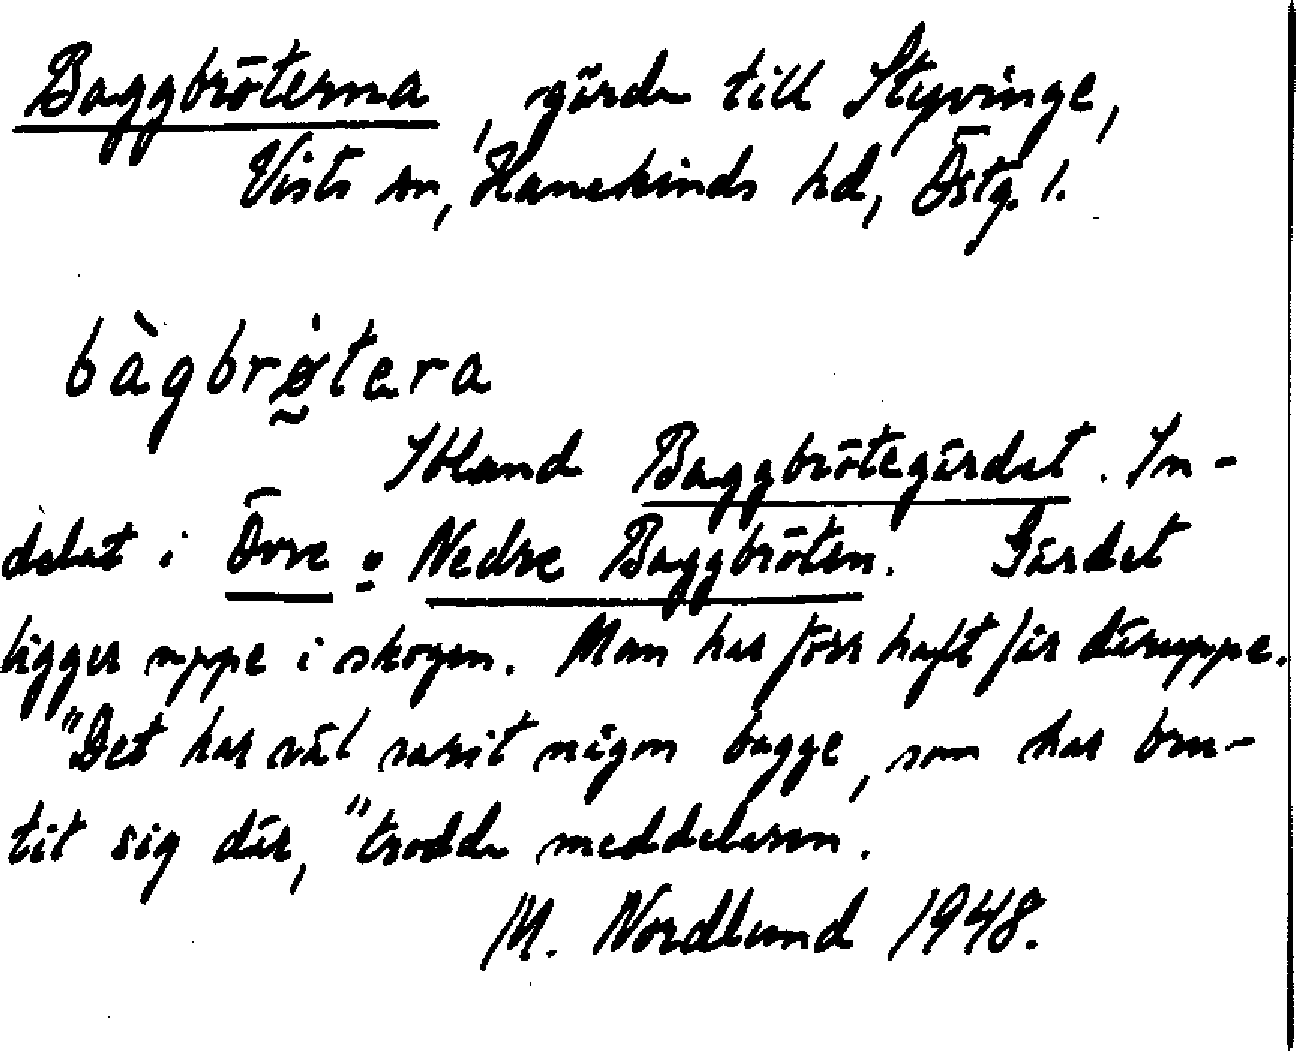 Baggbröterna, gärde till Styvinge,
Vists sn, Hanekinds hd, Östg. l.
bàgbrø̰̇tera
Ibland Baggbrötegärdet. In-
delat i Övre o Nedre Baggbröten. Gärdet
ligger uppe i skogen. Man har förr haft får däruppe.
"Det har väl varit någon bagge, som har bru-
tit sig där," trodde meddelaren.
M. Nordlund 1948.